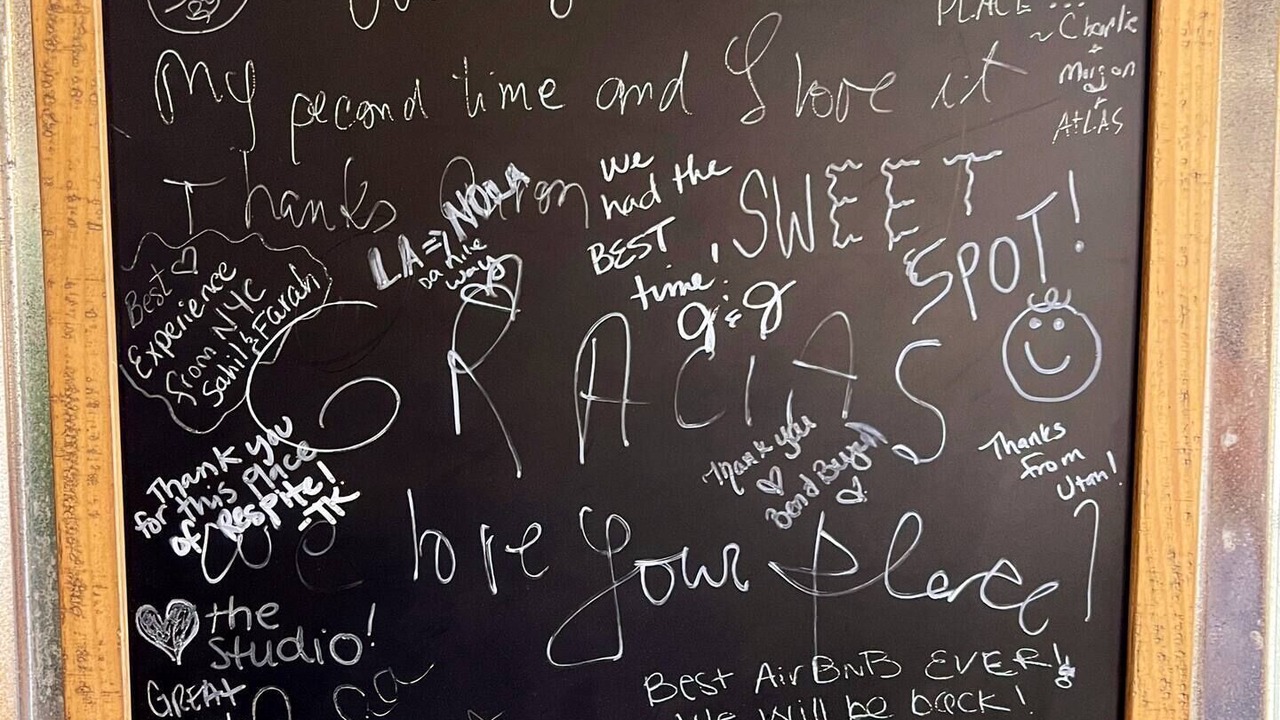 PLACE ...
~ Charlie
+
Morgan
+
AtLAS
My second time and I love it
Thanks
LA => NOLA
Da Nile
way
We
had the
BEST
time!
J & J
SWEET
SPOT!
Best ♡
Experience
from NYC
Sahil & Farah
GRACIAS
Thank you
for this place
of Respite!
-TK
Thank you
♡
Ben & Bayah
Thanks
from
Utah!
We love your place!
♥ the
studio!
GREAT
Best AirBnB EVER!
We will be back!